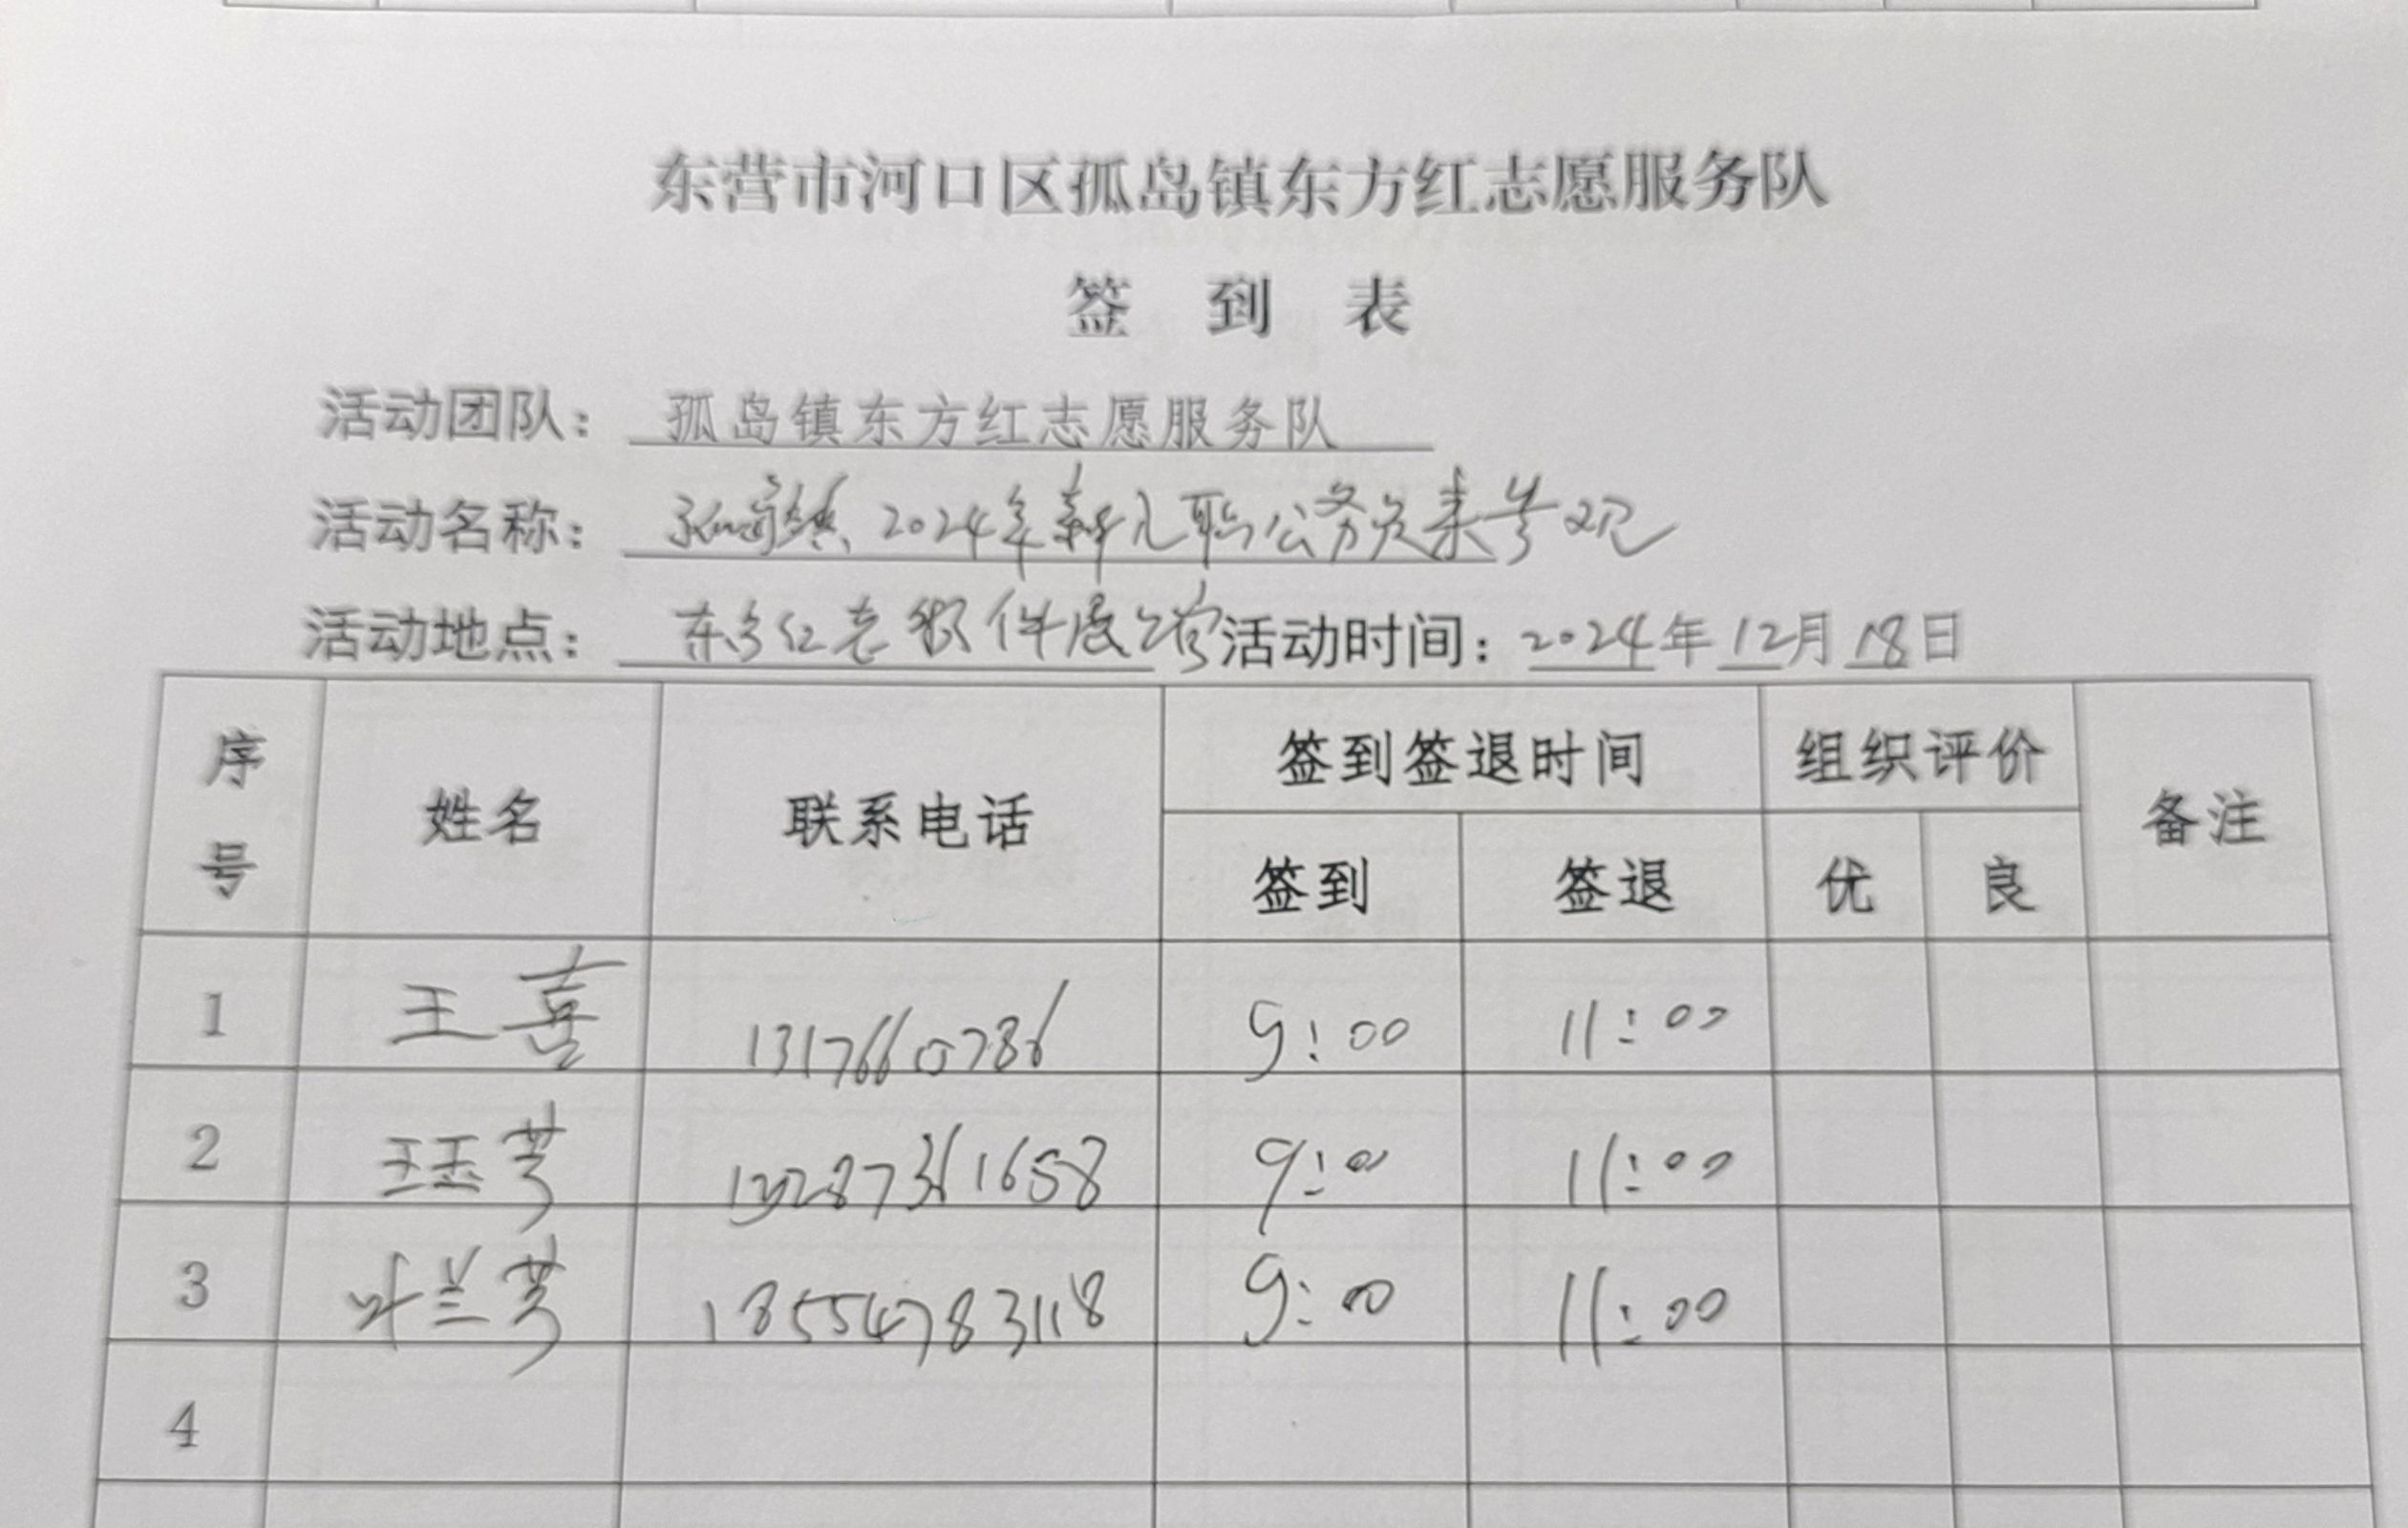 东营市河口区孤岛镇东方红志愿服务队
签 到 表
活动团队： 孤岛镇东方红志愿服务队
活动名称： 孤岛镇2024年新入职公务员来参观
活动地点： 东方红老物件展馆 活动时间：2024年12月18日
序号 姓名 联系电话 签到签退时间 组织评价 备注
签到 签退 优 良
1 王喜 1317660786 9:00 11:00
2 王玉芳 9:00 11:00
3 叶兰芳 18554783118 9:00 11:00
4